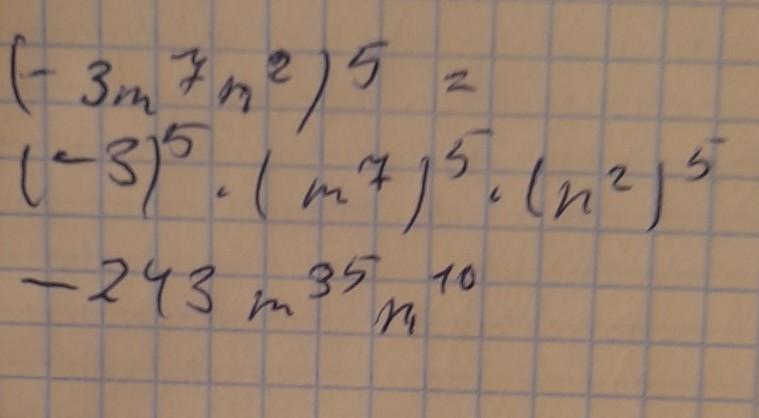 (-3m⁷n²)⁵ =
(-3)⁵ · (m⁷)⁵ · (n²)⁵
-243 m³⁵n¹⁰